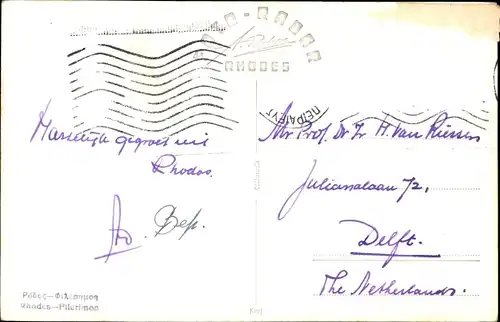 RHODES
ΠΕΙΡΑΙΕΥΣ
Hartelijk gegroet uit
Rhodos.
Bep.
Mr Prof. Dr Ir H. van Riessen
Julianalaan 72,
Delft.
The Netherlands.
Ρόδος—Φιλέρημος
Rhodes—Fileremos